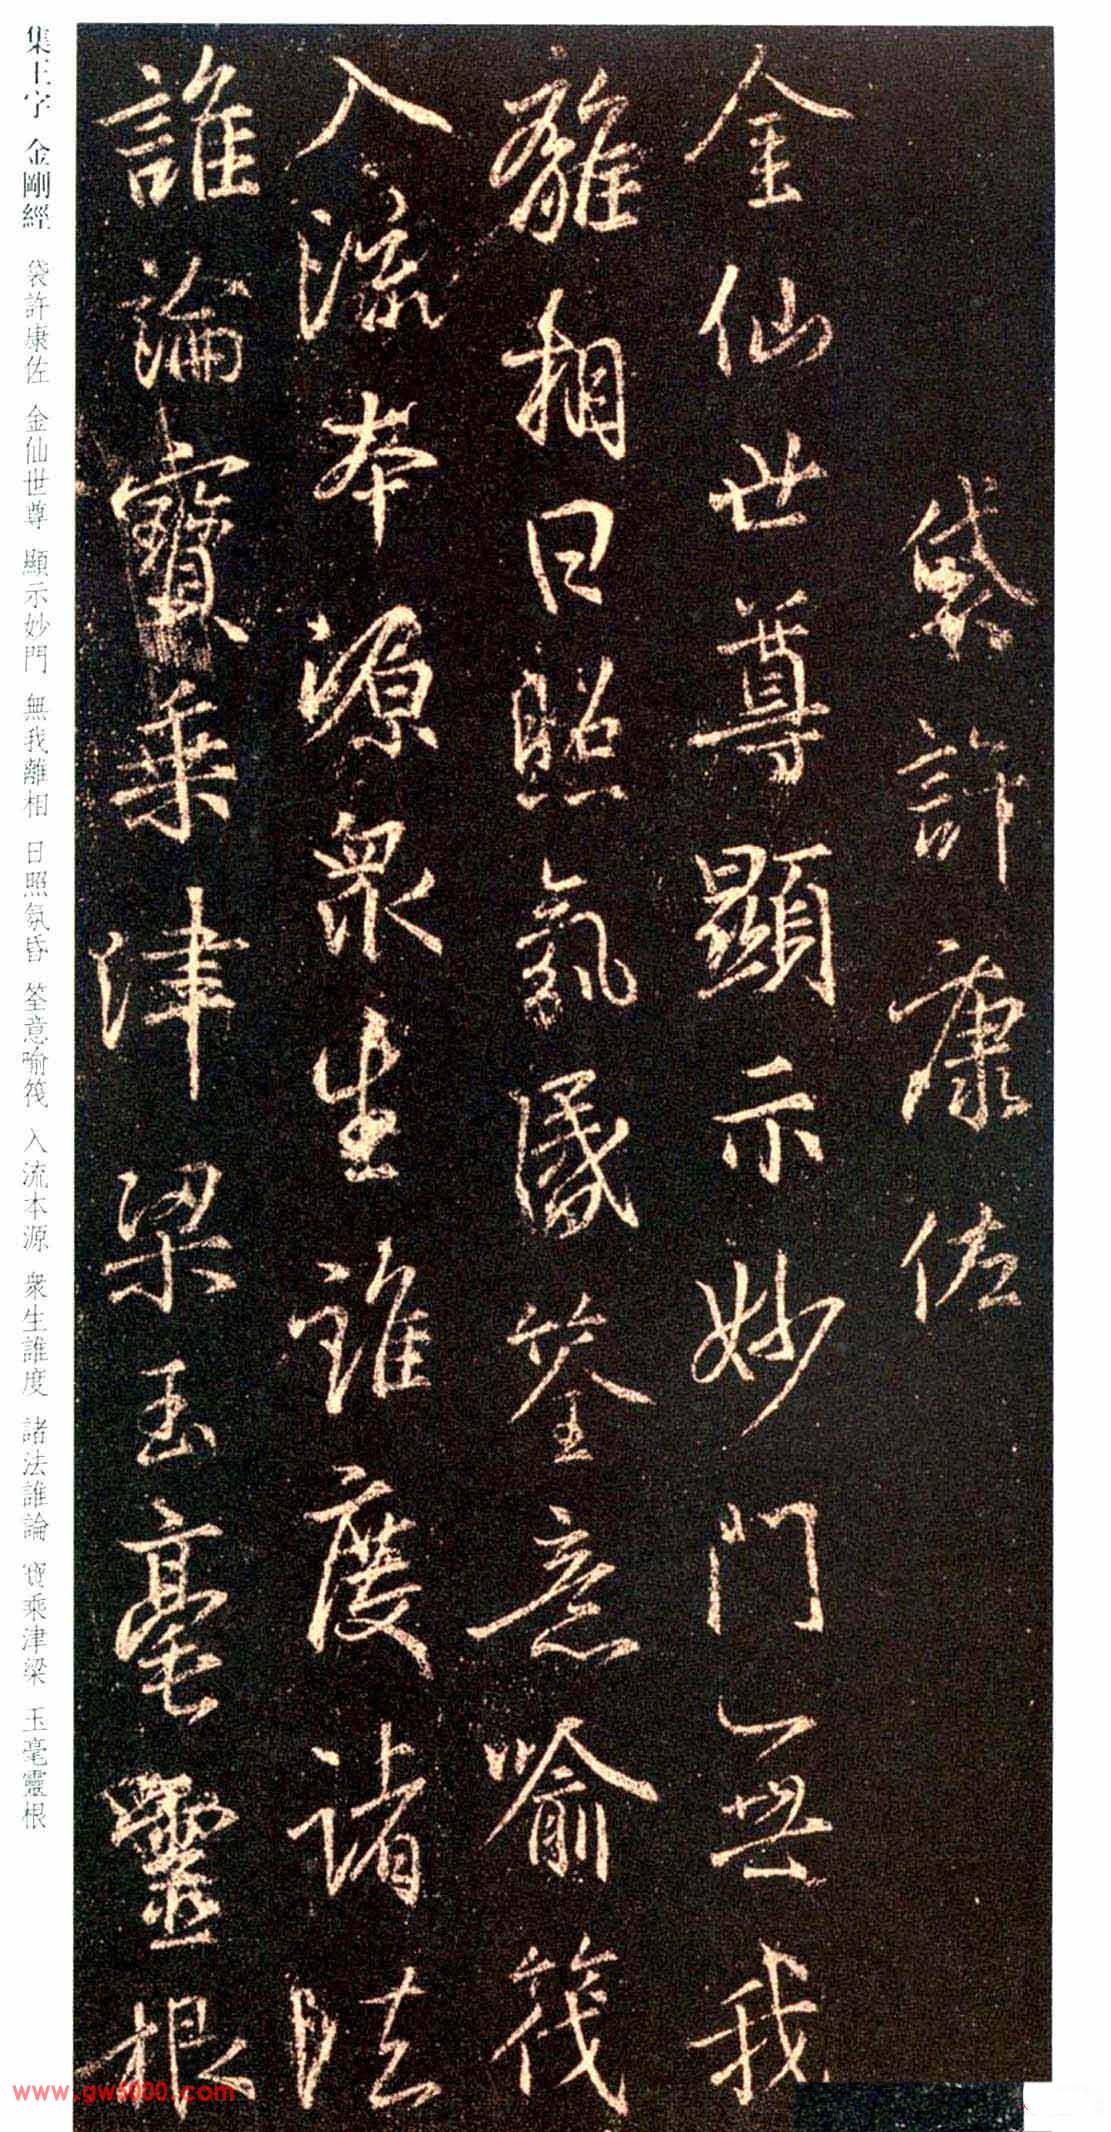 袋許康佐
金仙世尊顯示妙門無我
離相日照氛昏筌意喻筏
入流本源衆生誰度諸法
誰論寶乘津梁玉毫靈根
集王字 金剛經 袋許康佐 金仙世尊 顯示妙門 無我離相 日照氛昏 筌意喻筏 入流本源 衆生誰度 諸法誰論 寶乘津梁 玉毫靈根
www.gw5000.com